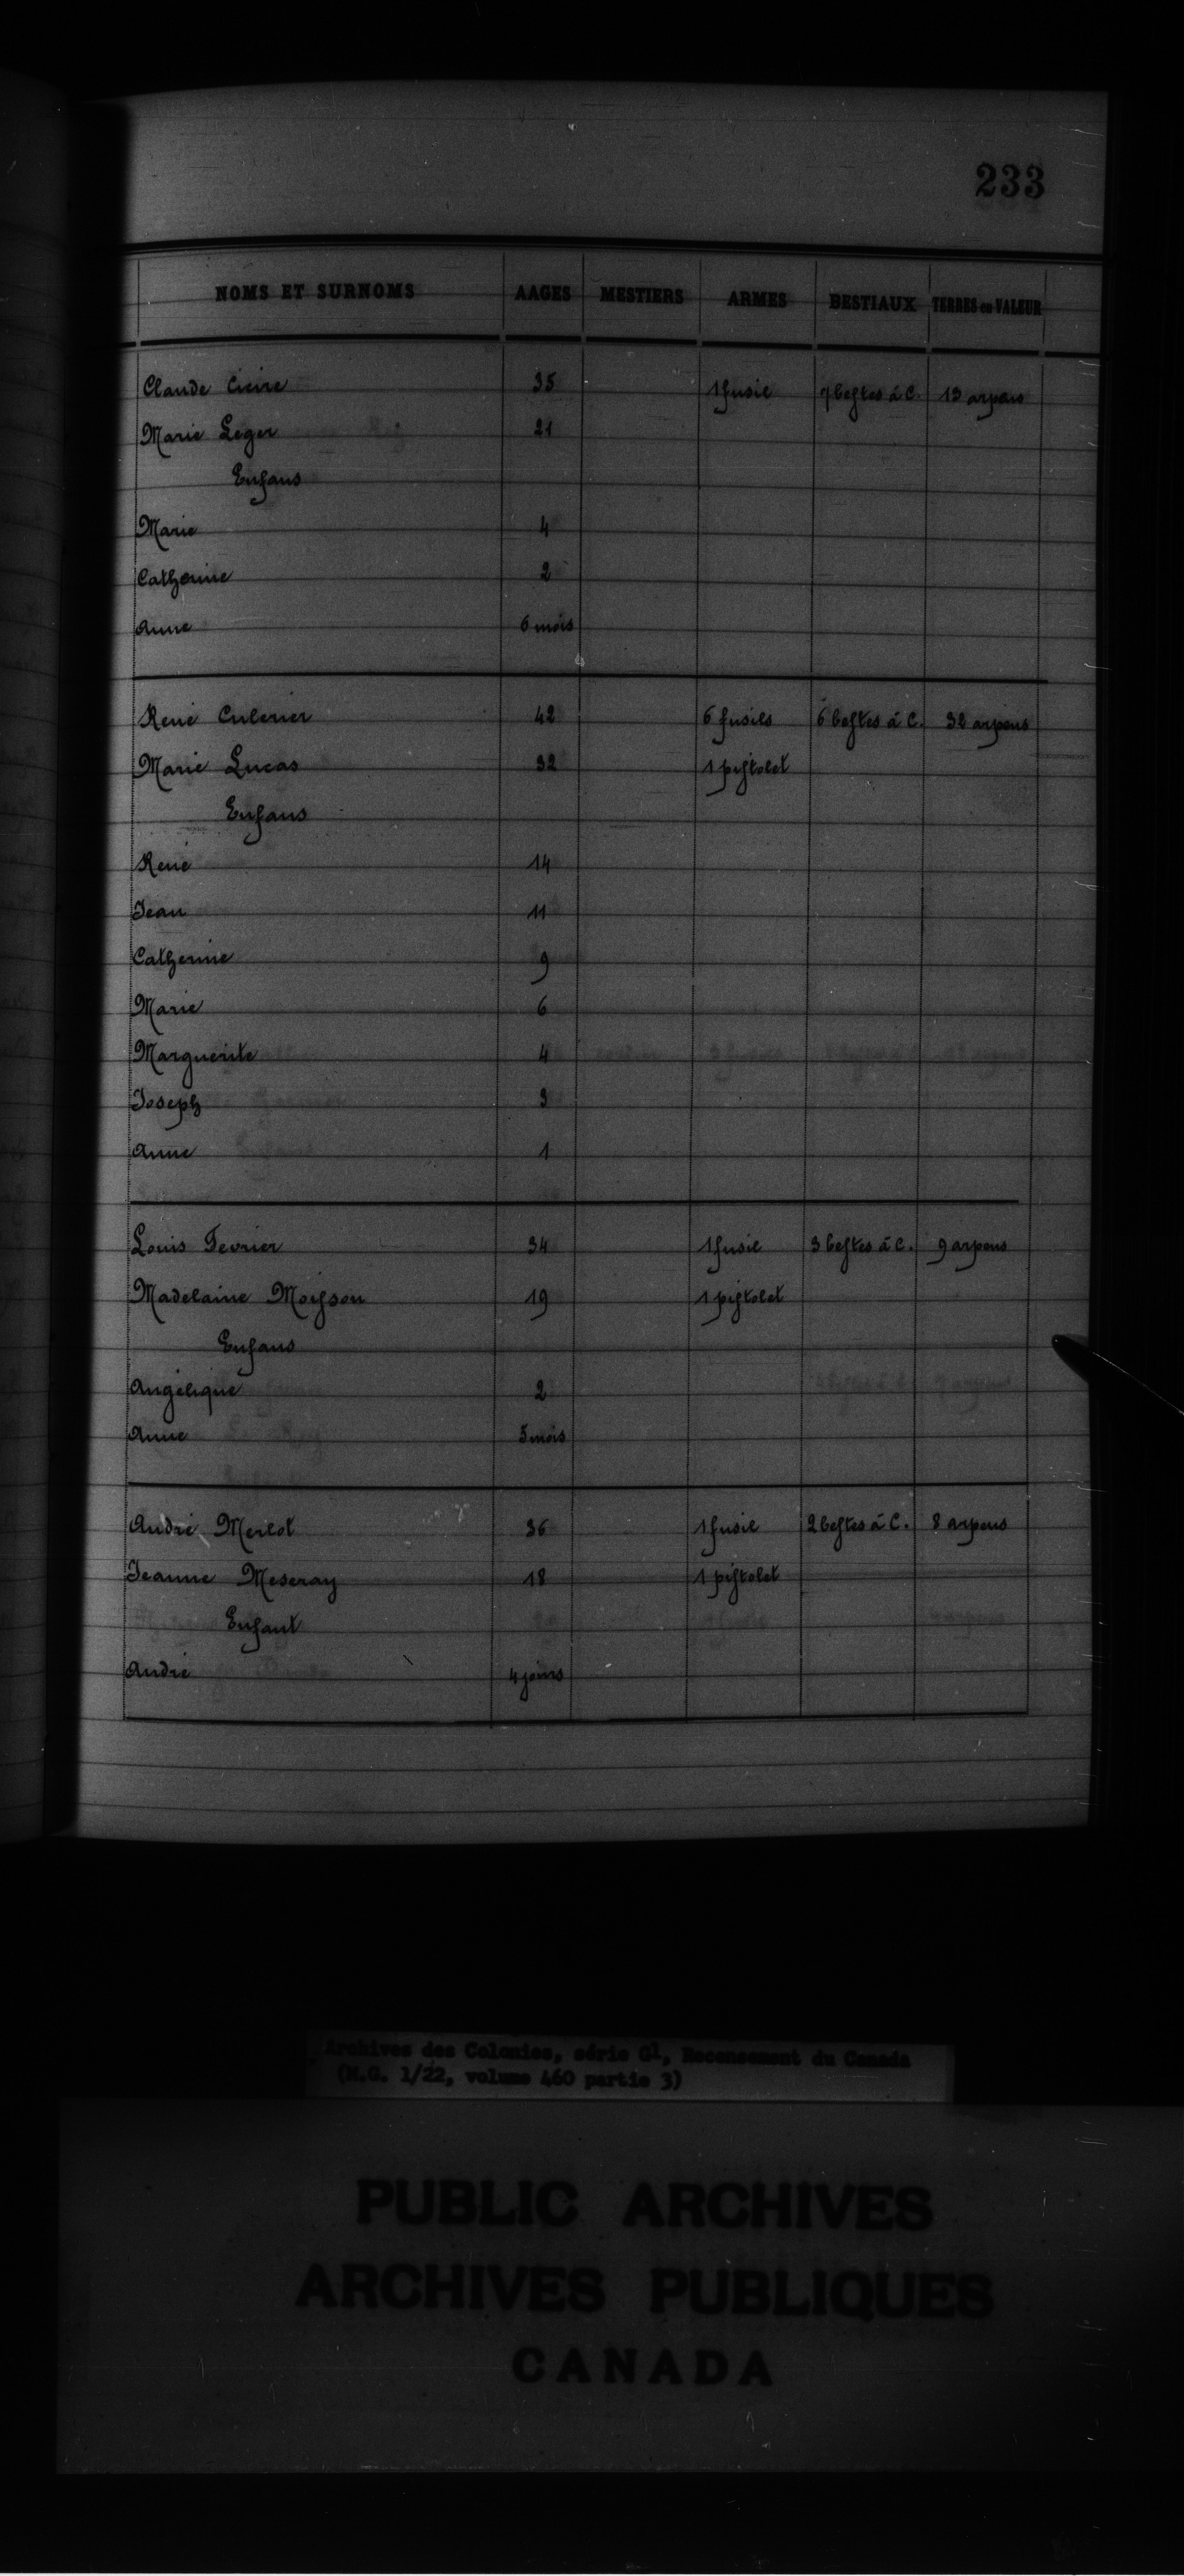 233
NOMS ET SURNOMS AAGES MESTIERS ARMES BESTIAUX TERRES en VALEUR
Claude 35 1 fusil 7 bestes à C. 13 arpens
Marie Leger 21
Enfans
Marie 4
Catherine 2
Anne 6 mois
René Culerier 42 6 fusils 6 bestes à C. 32 arpens
Marie Lucas 32 1 pistolet
Enfans
René 14
Jean 11
Catherine 9
Marie 6
Marguerite 4
Joseph 3
Anne 1
Louis Fevrier 34 1 fusil 3 bestes à C. 9 arpens
Madelaine Moisson 19 1 pistolet
Enfans
Angélique 2
Anne 5 mois
André Merlot 36 1 fusil 2 bestes à C. 8 arpens
Jeanne Meseray 18 1 pistolet
Enfant
André 4 jours
Archives des Colonies, série G1, Recensement du Canada
(M.G. 1/22, volume 460 partie 3)
PUBLIC ARCHIVES
ARCHIVES PUBLIQUES
CANADA